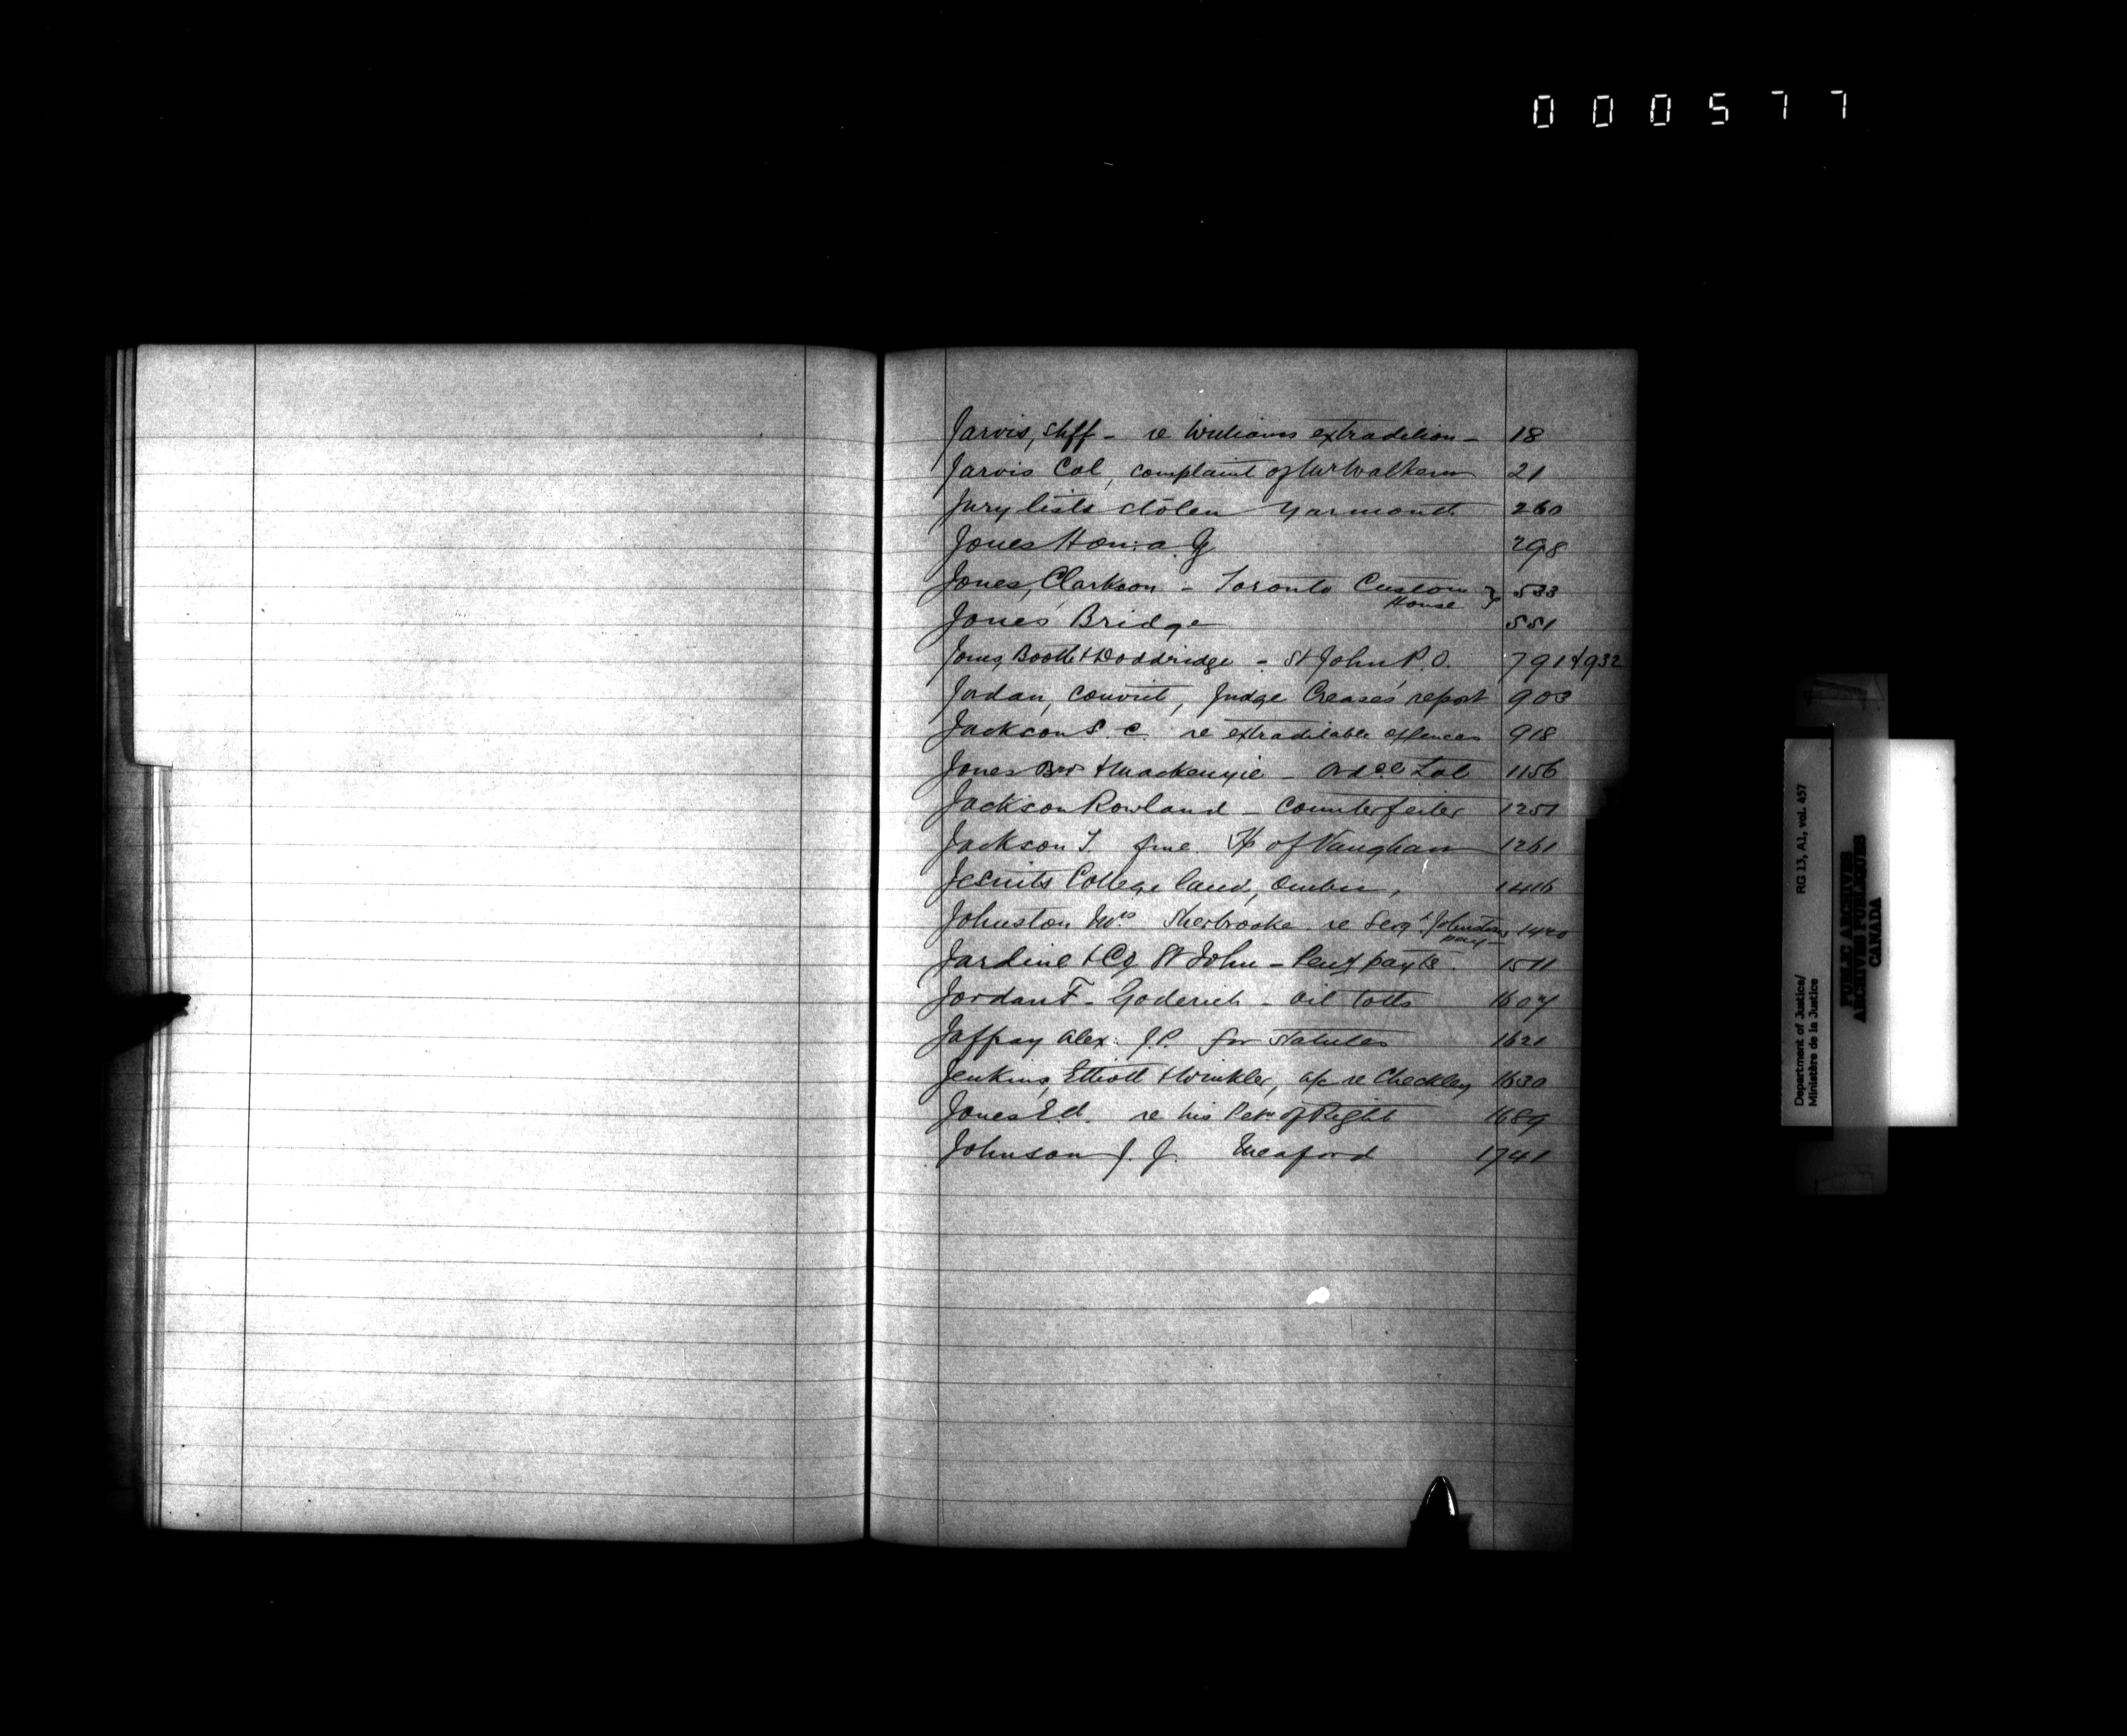 000577
Jarvis, Shff - re Williams extradition - 18
Jarvis Col, complaint of Mr Walkem 21
Jury lists stolen Yarmouth 260
Jones Hon: a. G 298
Jones, Clarkson - Toronto Custom House } 533
Jones' Bridge 551
Jones, Booth & Doddridge - St John P. O. 791 & 932
Jordan, convict, Judge Crease's report 903
Jackson S. C. re extraditable offences 918
Jones Bros & Mackenzie - 1156
Jackson Rowland - Counterfeiter 1251
Jackson T. fine Tp of Vaughan 1261
Jesuits College land, Quebec, 1416
Johnston Mrs Sherbrooke re Sergt Johnston's pay - 1420
Jardine & Co St John - Peny payts. 1511
Jordan F - Goderich - oil 1607
Jaffray Alex: J.P. for Statutes 1621
Jenkins, Elliott & Winkler, a/c re Checkley 1630
Jones Ed. re his Petn of Right 1689
Johnson J. J. Meaford 1741
Department of Justice/ RG 13, A1, vol. 457
Ministère de la Justice
PUBLIC ARCHIVES
ARCHIVES PUBLIQUES
CANADA